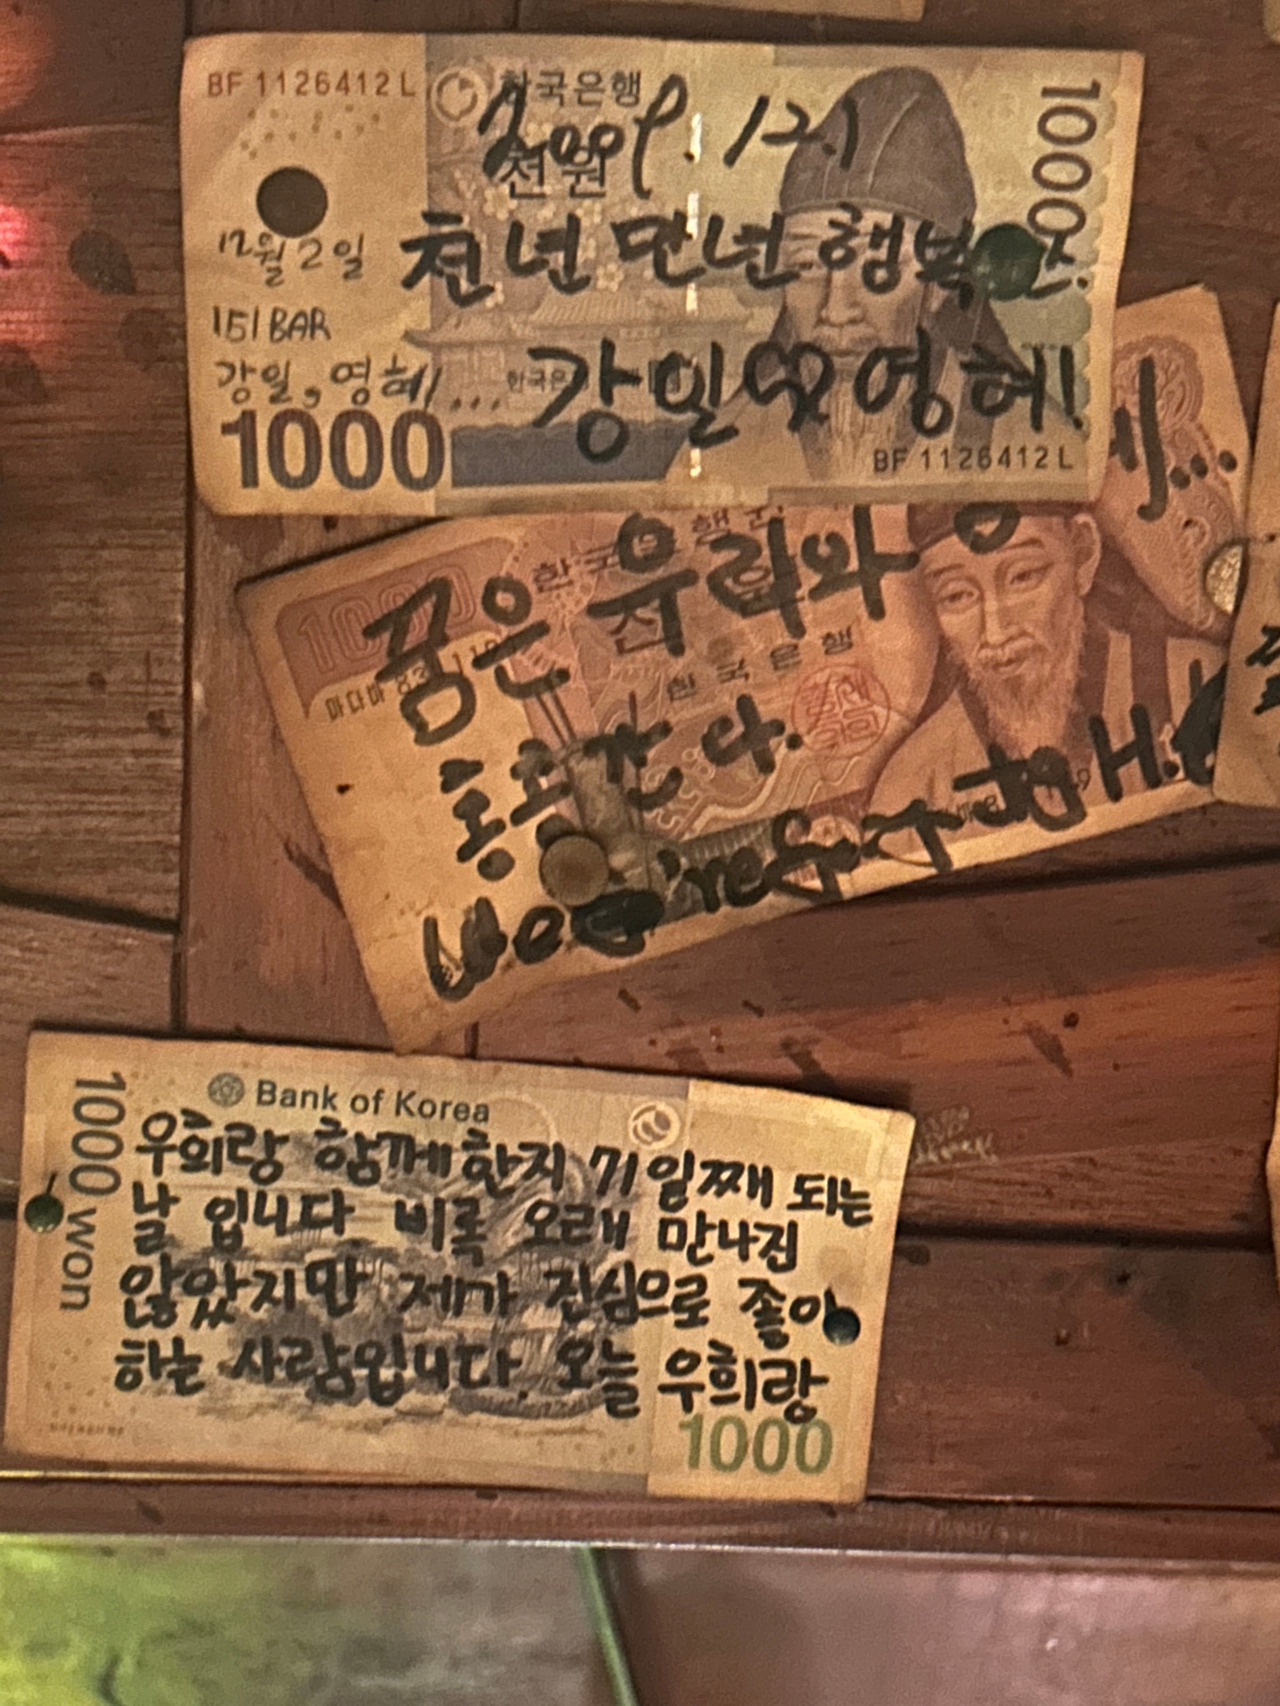 BF 1126412 L
한국은행
천원
1000
2009. 12.1
12월 2일
천년만년 행복
151 BAR
강일, 영혜...
강일 영혜!
1000
BF 1126412 L
꿈은 우리와
한국은행
통한다.
1000
Bank of Korea
1000 won
우희랑 함께한지 71일째 되는
날 입니다 비록 오래 만나진
않았지만 제가 진심으로 좋아
하는 사람입니다. 오늘 우희랑
1000